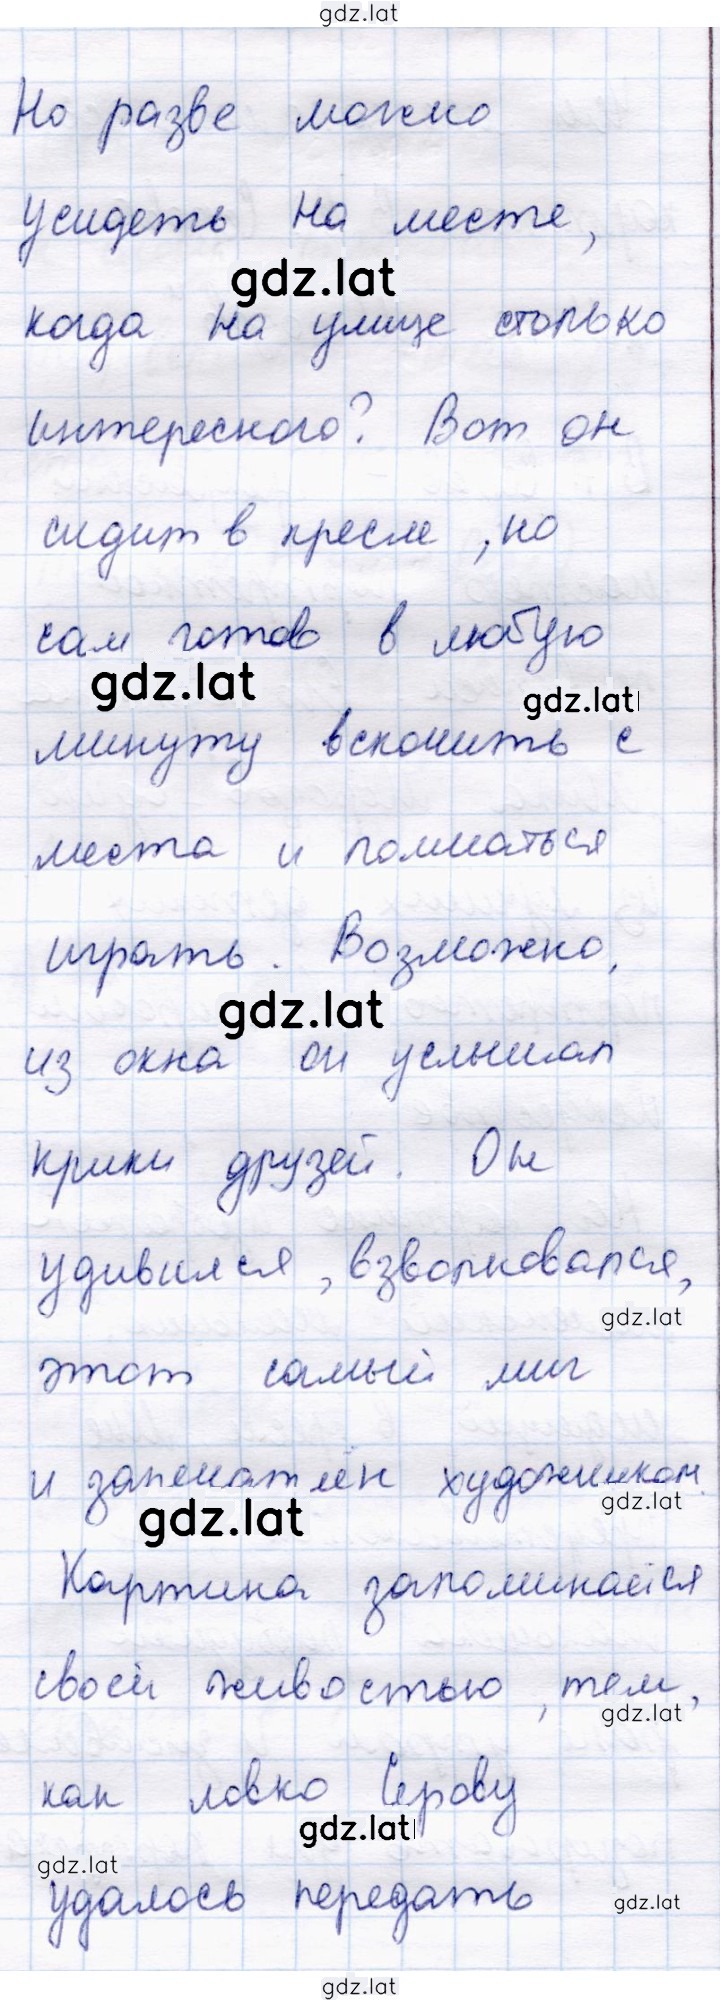 gdz.lat
Но разве можно
усидеть на месте,
gdz.lat
когда на улице столько
интересного? Вот он
сидит в кресле, но
сам готов в любую
gdz.lat
gdz.lat
минуту вскочить с
места и помчаться
играть. Возможно,
gdz.lat
из окна он услышал
крики друзей. Он
удивился, взволновался,
gdz.lat
этот самый миг
и запечатлён художником.
gdz.lat
gdz.lat
Картина запоминается
своей живостью, тем,
gdz.lat
как ловко Серову
gdz.lat
gdz.lat
удалось передать
gdz.lat
gdz.lat